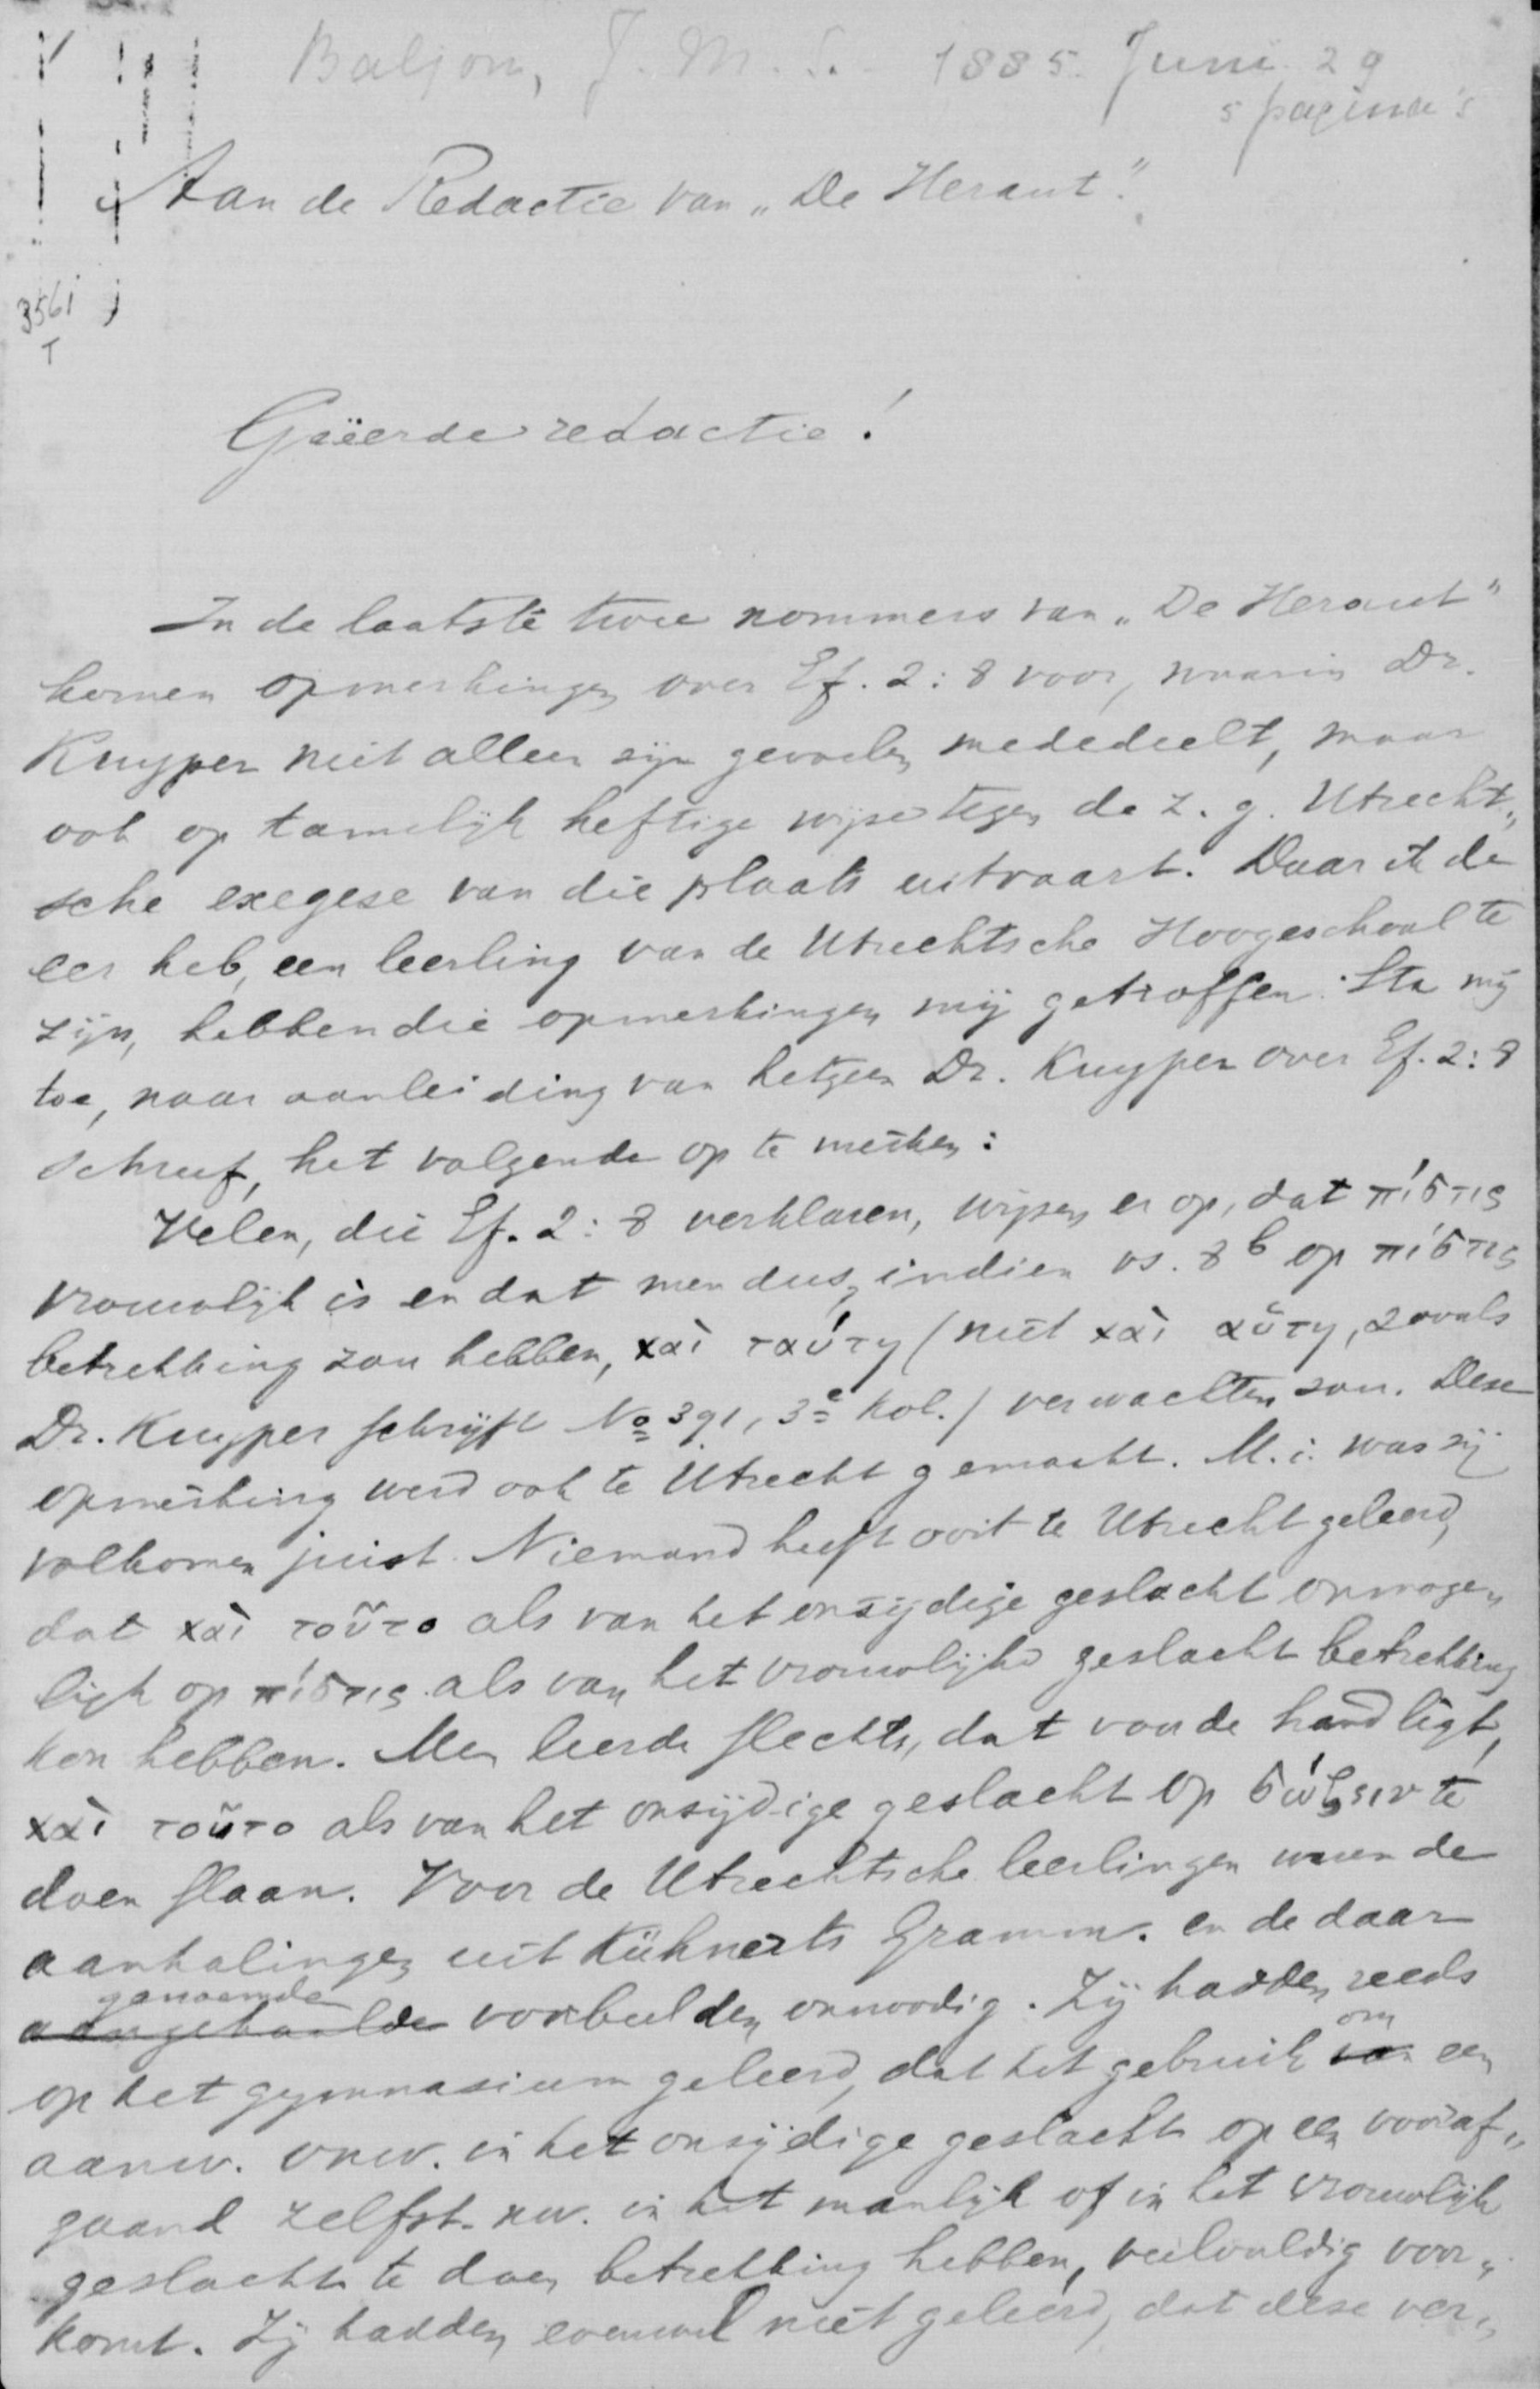 Baljon, J. M. S. - 1885 Juni 29
5 pagina's
Aan de Redactie van „De Heraut".
3561
T
Geëerde redactie!
In de laatste twee nommers van „De Heraut"
komen opmerkingen over Ef. 2:8 voor, waarin Dr.
Kuyper niet alleen zijn gevoelen mededeelt, maar
ook op tamelijk heftige wijze tegen de z. g. Utrecht„
sche exegese van die plaats uitvaart. Daar ik de
eer heb, een leerling van de Utrechtsche Hoogeschool te
zijn, hebben die opmerkingen mij getroffen. Sta mij
toe, naar aanleiding van hetgeen Dr. Kuyper over Ef. 2:8
schreef, het volgende op te merken:
Velen, die Ef. 2:8 verklaren, wijzen er op, dat πίστις
vrouwelijk is en dat men dus, indien vs. 8b op πίστις
betrekking zou hebben, καὶ ταύτῃ (niet καὶ αὕτη, zooals
Dr. Kuyper schrijft No 391, 3e kol.) verwachten zou. Deze
opmerking werd ook te Utrecht gemaakt. M. i. was zij
volkomen juist. Niemand heeft ooit te Utrecht geleerd,
dat καὶ τοῦτο als van het onzijdige geslacht onmoge„
lijk op πίστις als van het vrouwelijke geslacht betrekking
kon hebben. Men leerde slechts, dat voor de hand ligt,
καὶ τοῦτο als van het onzijdige geslacht op σώζειν te
doen slaan. Voor de Utrechtsche leerlingen waren de
aanhalingen uit Kühner's Gramm. en de daar
genoemde
aangehaalde voorbeelden onnoodig. Zij hadden reeds
op het gymnasium geleerd, dat het gebruik van om een
aanw. vnw. in het onzijdige geslacht op een vooraf„
gaand zelfst. nw. in het manlijk of in het vrouwelijk
geslacht te doen betrekking hebben, veelvuldig voor„
komt. Zij hadden evenwel niet geleerd, dat deze ver„